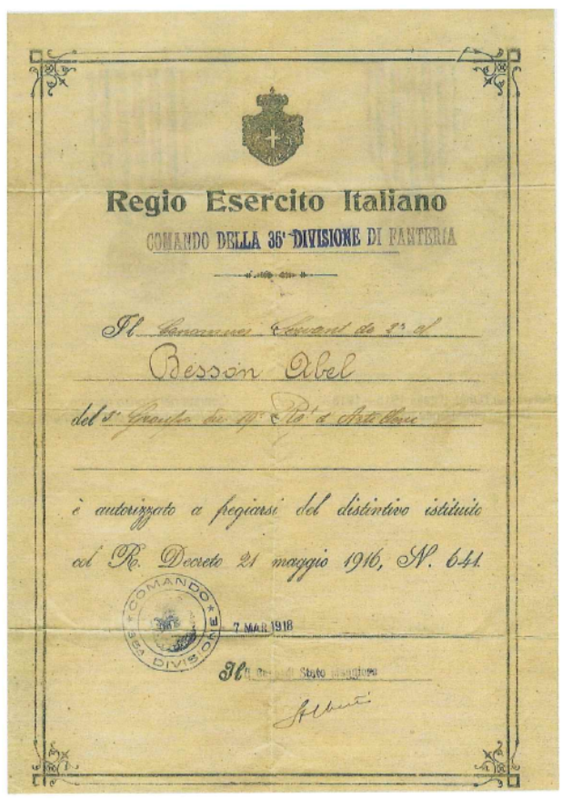 Regio Esercito Italiano
COMANDO DELLA 35ª DIVISIONE DI FANTERIA
Il Canonnier Servant de 2e cl
Besson Abel
del 3e Groupe du 19e Rgt d'Artillerie
è autorizzato a fregiarsi del distintivo istituito
col R. Decreto 21 maggio 1916, N. 641.
COMANDO
35a DIVISIONE
7 MAR 1918
Il Capo di Stato Maggiore